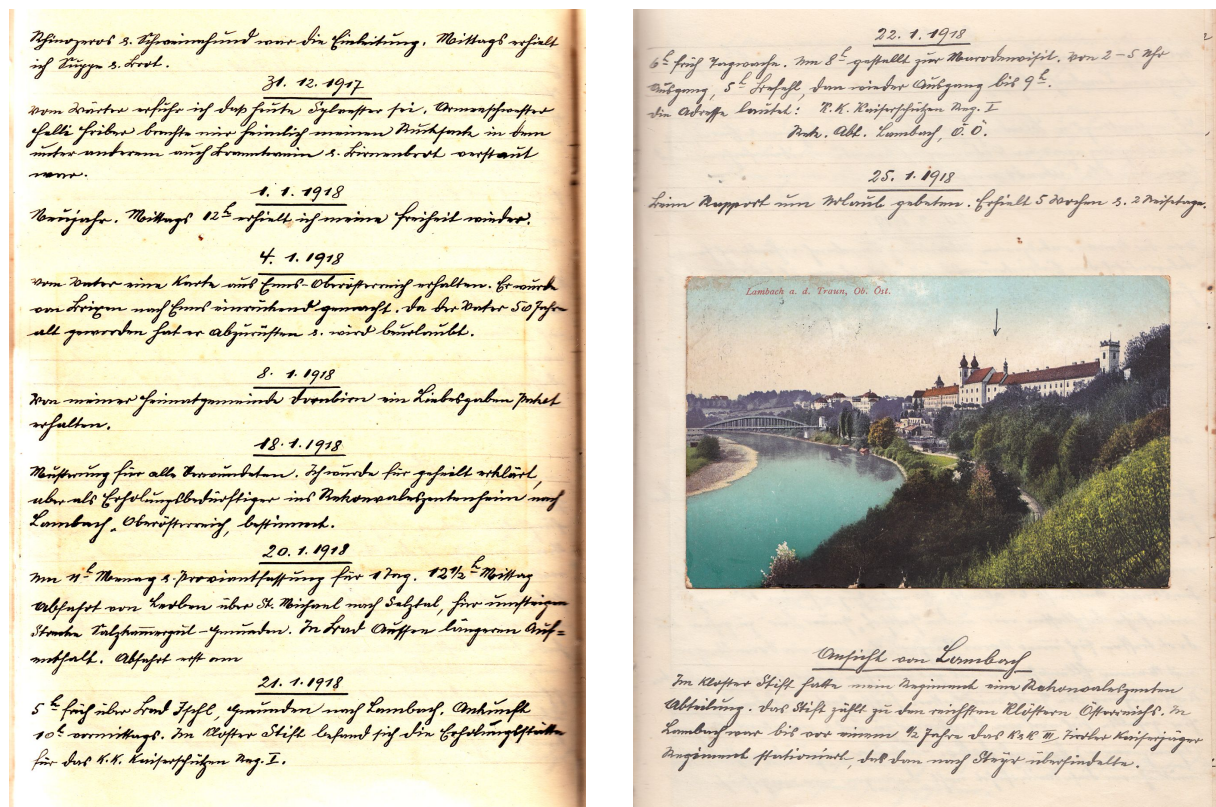 Rhinozeros & Schweinehund war die Einleitung. Mittags erhielt
ich Suppe & Brot.
31. 12. 1917
Vom Wärter erfuhr ich daß heute Sylvester sei. Armeeschwester
Helli Hriber brachte mir heimlich meinen Rucksack in dem
unter anderem auch Branntwein & Birnenbrot verstaut
war.
1. 1. 1918
Neujahr. Mittags 12 h erhielt ich meine Freiheit wieder.
4. 1. 1918
Vom Vater eine Karte aus Enns-Oberösterreich erhalten. Er wurde
von Brixen nach Enns einrückend gemacht. Da der Vater 50 Jahre
alt geworden hat er Abzurüsten & wird beurlaubt.
8. 1. 1918
Von meiner Heimatgemeinde Dornbirn ein Liebesgaben Paket
erhalten.
18. 1. 1918
Musterung für alle Verwundeten. Ich wurde für geheilt erklärt,
aber als Erholungsbedürftiger ins Rekonvaleszentenheim nach
Lambach, Oberösterreich, bestimmt.
20. 1. 1918
Um 11 h Menag & Proviantfassung für 1 Tag. 12 1/2 h Mittag
Abfahrt von Leoben über St. Michael nach Selztal, hier umsteigen
Strecke Salzkammergut - Gmunden. In Bad Aussee längeren Auf=
enthalt. Abfahrt erst am
21. 1. 1918
5 h früh über Bad Ischl, Gmunden nach Lambach. Ankunft
10 h vormittags. Im Kloster Stift befand sich die Erholungsstätte
für das K.K. Kaiserschützen Reg. I.
22. 1. 1918
6 h früh Tagwache. Um 8 h gestellt zur Marodenvisit. Von 2 - 5 Uhr
Ausgang, 5 h Befehl, dan wieder Ausgang bis 9 h.
Die Adresse lautet: K. K. Kaiserschützen Reg. I
Rek. Abt. Lambach, O. Ö.
25. 1. 1918
Beim Rapport um Urlaub gebeten. Erhielt 5 Wochen & 2 Reisetage.
Lambach a. d. Traun, Ob. Öst.
Ansicht von Lambach
Im Kloster Stift hatte mein Regiment eine Rekonvaleszenten
Abteilung. Das Stift zählt zu den reichsten Klöstern Österreichs. In
Lambach war bis vor einem 1/2 Jahre das K & K III. Tiroler Kaiserjäger
Regiment stationiert, das dan nach Steyr übersiedelte.